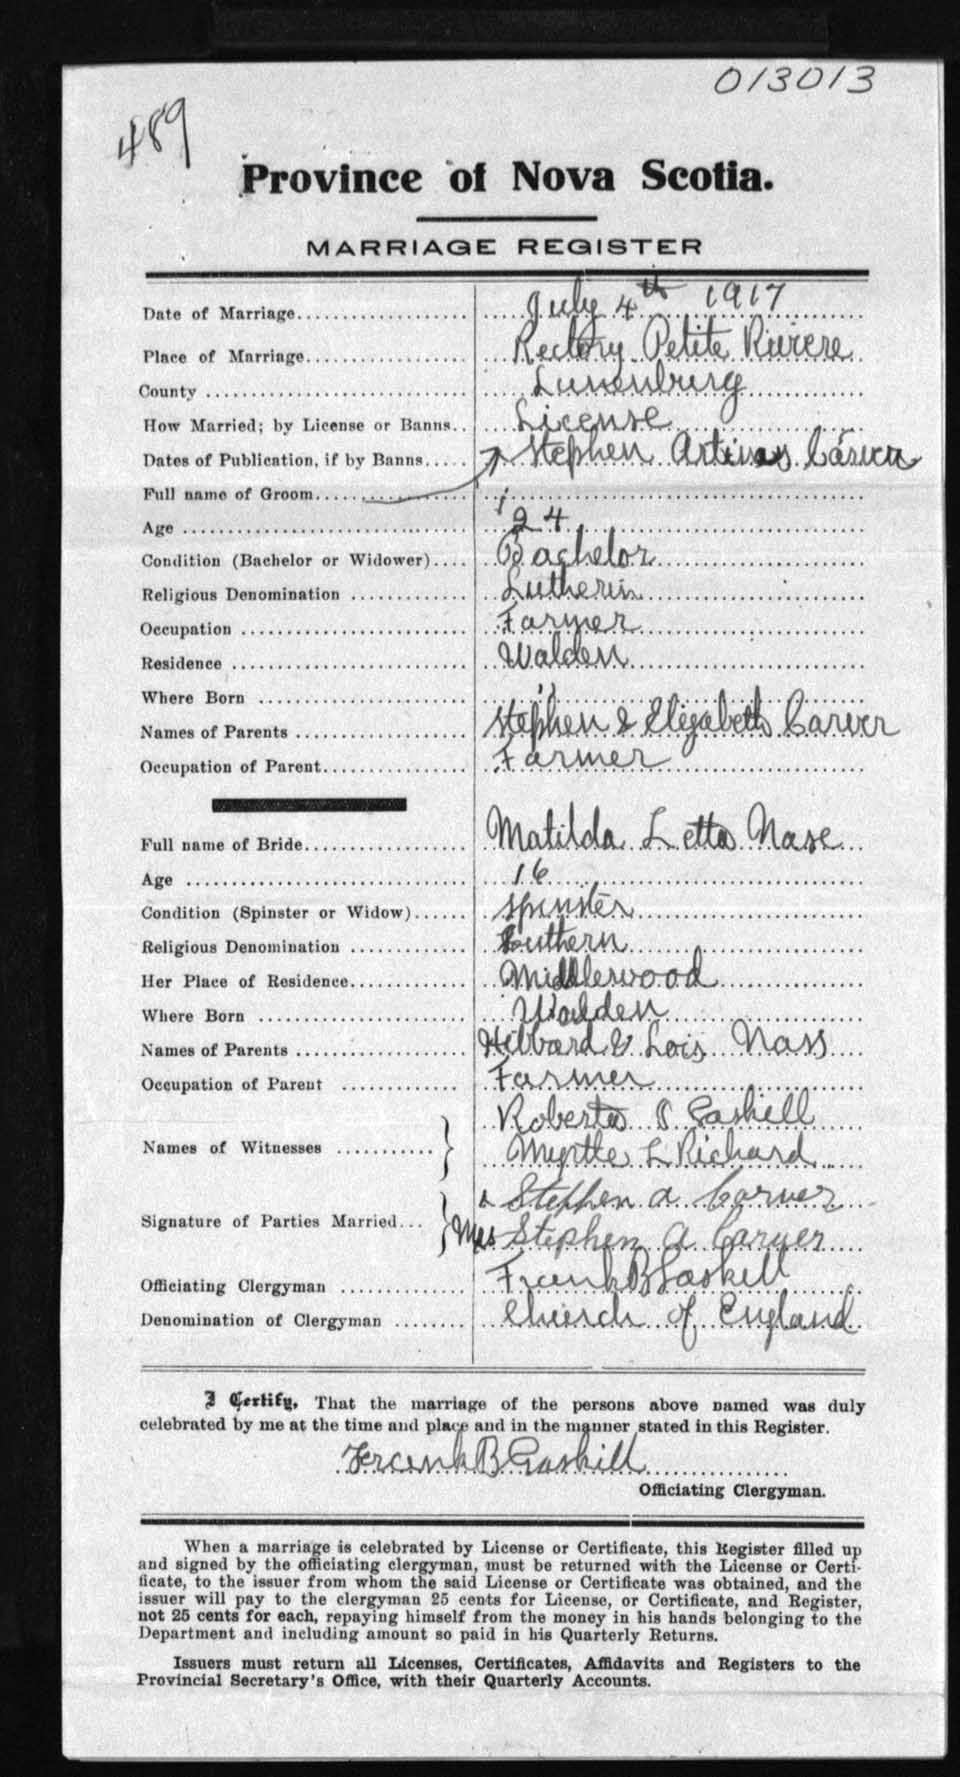 013013
489
Province of Nova Scotia.
MARRIAGE REGISTER
Date of Marriage July 4th 1917
Place of Marriage Rectory Petite Riviere
County Lunenburg
How Married; by License or Banns License
Dates of Publication, if by Banns Stephen Artimas Carver
Full name of Groom "
Age 24
Condition (Bachelor or Widower) Bachelor
Religious Denomination Lutherin
Occupation Farmer
Residence Walden
Where Born "
Names of Parents Stephen & Elizabeth Carver
Occupation of Parent Farmer
Full name of Bride Matilda Letta Nase
Age 16
Condition (Spinster or Widow) Spinster
Religious Denomination Luthern
Her Place of Residence Middlewood
Where Born Walden
Names of Parents Hibbard & Lois Nass
Occupation of Parent Farmer
Roberta S Gaskill
Names of Witnesses
Myrtle L Richard
Stephen A Carver
Signature of Parties Married
Mrs Stephen A Carver
Officiating Clergyman Frank B Gaskill
Denomination of Clergyman Church of England
I Certify, That the marriage of the persons above named was duly
celebrated by me at the time and place and in the manner stated in this Register.
Frank B Gaskill
Officiating Clergyman.
When a marriage is celebrated by License or Certificate, this Register filled up
and signed by the officiating clergyman, must be returned with the License or Certi-
ficate, to the issuer from whom the said License or Certificate was obtained, and the
issuer will pay to the clergyman 25 cents for License, or Certificate, and Register,
not 25 cents for each, repaying himself from the money in his hands belonging to the
Department and including amount so paid in his Quarterly Returns.
Issuers must return all Licenses, Certificates, Affidavits and Registers to the
Provincial Secretary's Office, with their Quarterly Accounts.